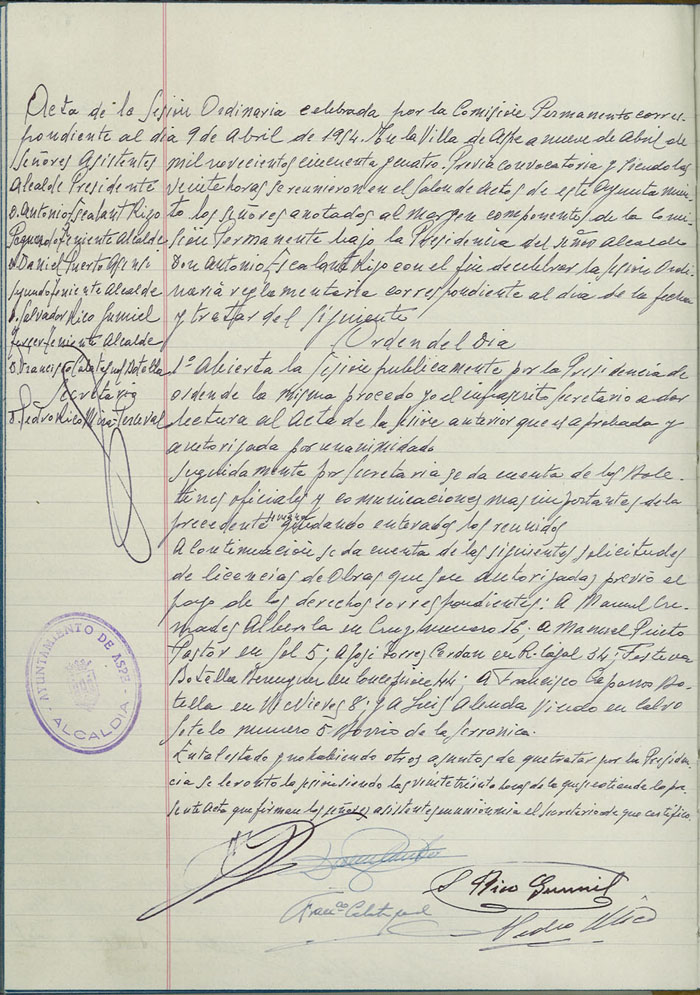 Acta de la Sesión Ordinaria celebrada por la Comisión Permanente corres-
pondiente al dia 9 de Abril de 1954. En la Villa de Aspe a nueve de Abril de
mil novecientos cincuenta y cuatro. Previa convocatoria y siendo las
veinte horas se reunieron en el Salon de Actos de este Ayuntamien-
to los señores anotados al margen componentes de la Comi-
sión Permanente bajo la Presidencia del Señor Alcalde
Don Antonio Escalant Rizo con el fin de celebrar la Sesion Ordi-
naria reglamentaria correspondiente al dia de la fecha
y tratar del siguiente
Señores Asistentes
Alcalde Presidente
D. Antonio Escalant Rizo
Primer Teniente Alcalde
D. Daniel Puerto
Segundo Teniente Alcalde
D. Salvador Rico Gumiel
Tercer Teniente Alcalde
D. Francisco Calatayud Botella
Secretario
D. Pedro Rico
Orden del Dia
1º Abierta la Sesión publicamente por la Presidencia de
orden de la misma procedo yo el infrascrito secretario a dar
lectura al Acta de la sesión anterior que es aprobada y
autorizada por unanimidad
Seguidamente por Secretaria se da cuenta de los Bole-
tines oficiales y comunicaciones mas importantes de la
precedente semana quedando enterados los reunidos
A continuación se da cuenta de las siguientes solicitudes
de licencias de Obras que son autorizadas previo el
pago de los derechos correspondientes: A Manuel Cre-
mades Alberola en Cruz numero 16. A Manuel Prieto
Pastor en Sol 5; A José Torres Cerdan en R. Cajal 34;
Botella en Concepción 44; A Francisco Caparros Bo-
tella en Nieves 8; y A Luis Alenda en Calvo
Sotelo numero 5 Barrio de la
En tal estado y no habiendo otros asuntos de que tratar por la Presiden-
cia se levanto la sesion siendo las veinte treinta horas de la que se extiende la pre-
sente Acta que firman los señores asistentes en union mia el secretario de que certifico.
AYUNTAMIENTO DE ASPE
ALCALDIA
Franco Calatayud
S Rico Gumiel
Pedro Rico